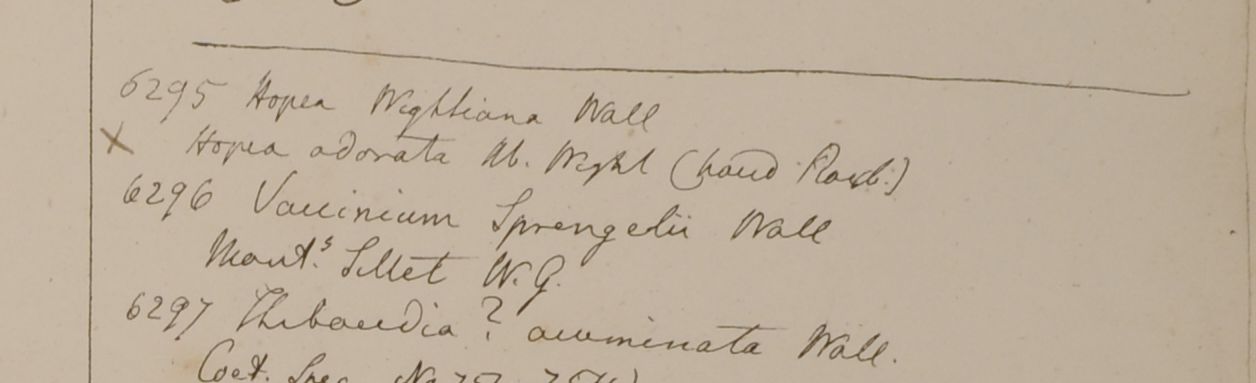 6295 Hopea Wightiana Wall
x Hopea odorata Hb. Wight (haud Roxb.)
6296 Vaccinium Sprengelii Wall
Mont.s Sillet W.G.
6297 Thibaudia ? acuminata Wall.
Cat. Spec. No